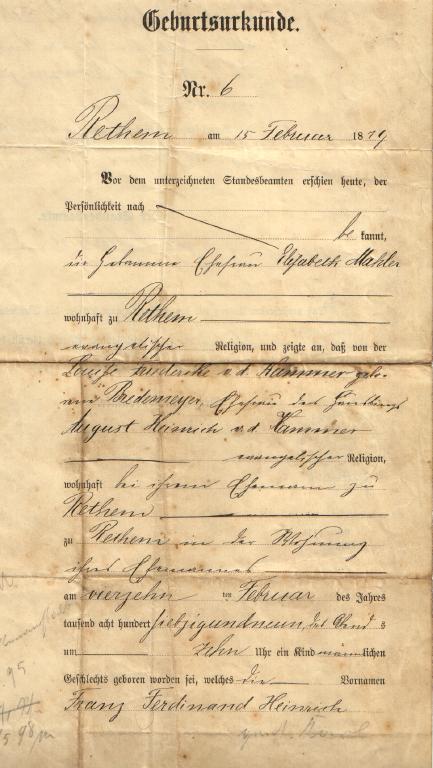 Geburtsurkunde.
Nr. 6
Rethem am 15 Februar 1879
Vor dem unterzeichneten Standesbeamten erschien heute, der
Persönlichkeit nach
be kannt,
die Hebamme Ehefrau Elisabeth Mahler
wohnhaft zu Rethem
evangelischer Religion, und zeigte an, daß von der
Louise v. d. Kammer gebo-
Bredemeyer, Ehefrau des
August Heinrich v. d. Kammer
evangelischer Religion,
wohnhaft bei ihrem Ehemann zu
Rethem
zu Rethem in der Wohnung
ihres Ehemannes
am vierzehn ten Februar des Jahres
tausend acht hundert siebzigundneun, des Abend s
um zehn Uhr ein Kind männlichen
Geschlechts geboren worden sei, welches die Vornamen
Franz Ferdinand Heinrich